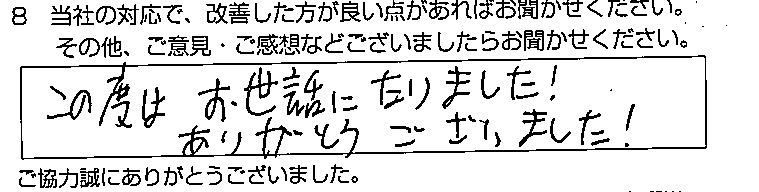 8 当社の対応で、改善した方が良い点があればお聞かせください。
その他、ご意見・ご感想などございましたらお聞かせください。
この度は お世話になりました!
ありがとう ございました!
ご協力誠にありがとうございました。